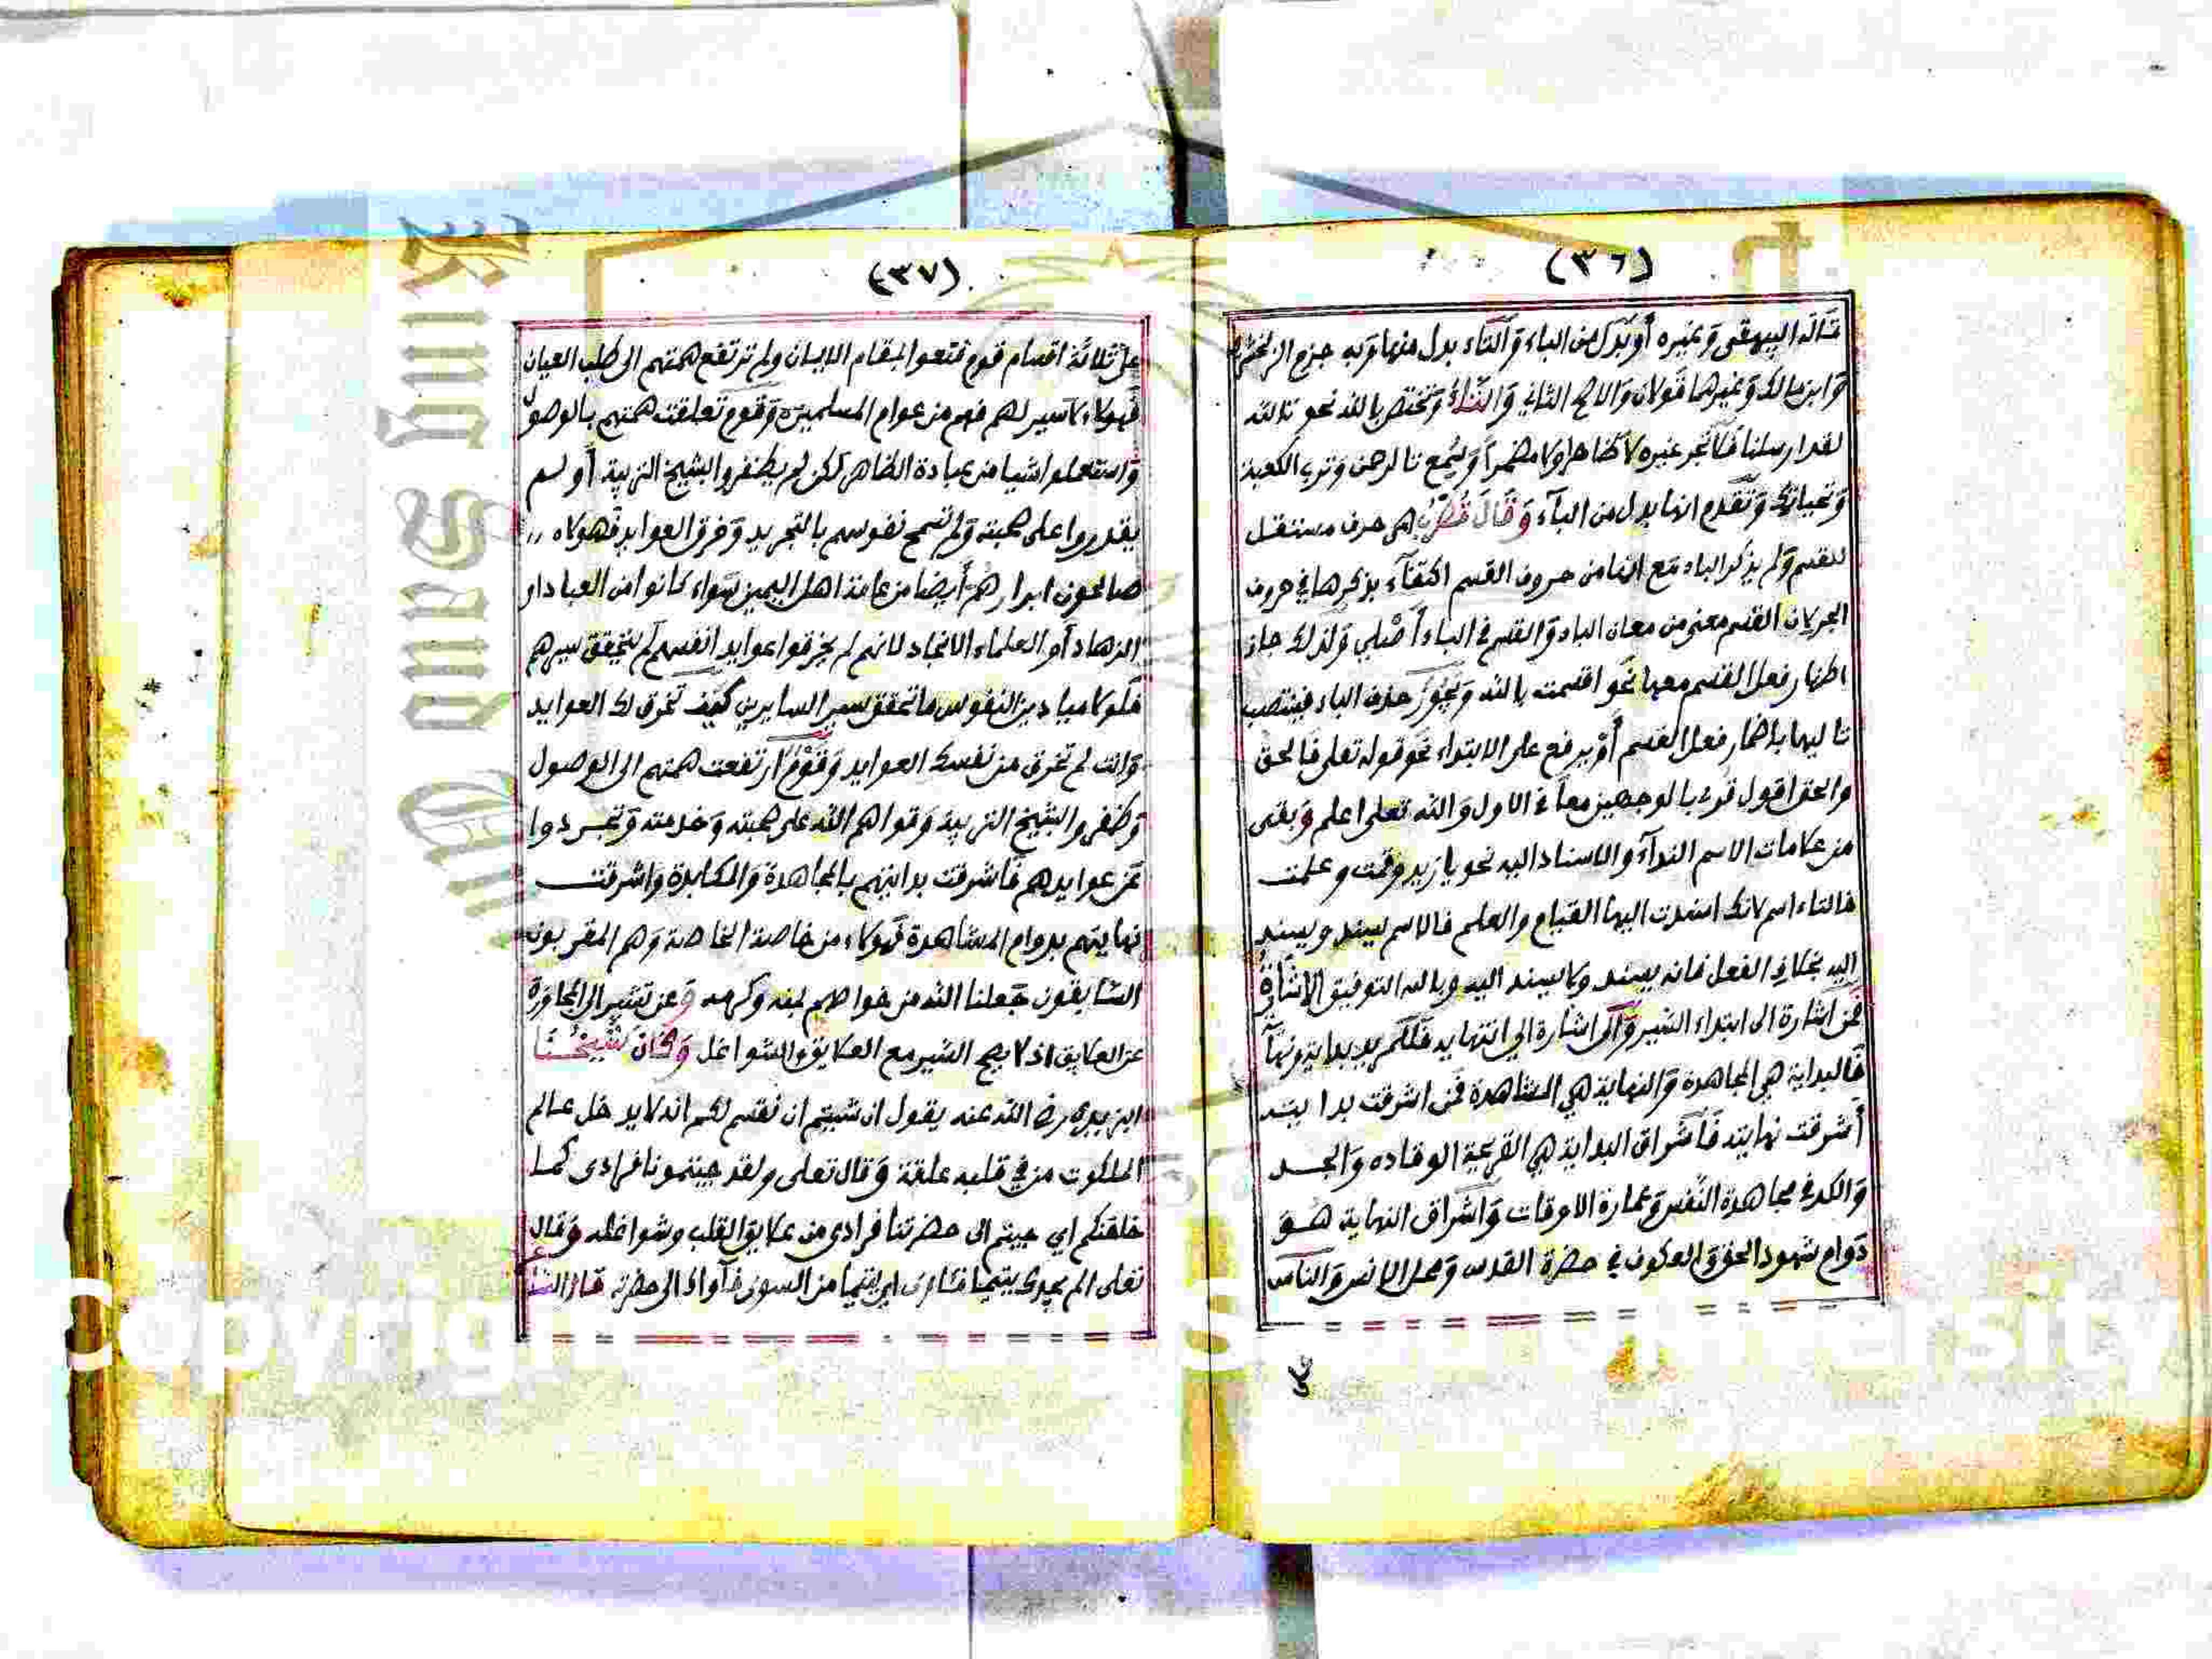 (٣٦)
قاله البيهقى وغيره أو بدل من الباء والتاء بدل منها وبه جزم الزمخشري
وابن مالك وغيرهما قولان والاصح الثاني والتاء وتختص بالله نحو تالله
لقد ارسلنا فلا تجر غيره لا ظاهرا ولا مضمرا وسمع تالرحمن وترب الكعبة
وتحياتك وتقدم انها بدل من الباء وقال قطرب هي حرف مستقل
للقسم ولم يذكر الباء مع انها من حروف القسم اكتفاء بذكرها في حروف
الجر لان القسم معنى من معان الباء والقسم في الباء أصلي ولذلك جاز
اظهار فعل القسم معها نحو اقسمت بالله ويجوز حذف الباء فينتصب
تاليها باضمار فعل القسم أو يرفع على الابتداء نحو قوله تعلى فالحق
والحق اقول قرئ بالوجهين معا في الاول والله تعلى اعلم وبقى
من علامات الاسم النداء والاسناد اليه نحو يا زيد وقمت وعلمت
فالتاء اسم لانك اسندت اليها القيام والعلم فالاسم يسند ويسند
اليه بخلاف الفعل فانه يسند ولا يسند اليه وبالله التوفيق الاشارة
فمن اشارة الى ابتداء السير وإلى اشارة الى انتهايه فلكم يد بداية ونهاية
فالبداية هي المجاهدة والنهاية هي المشاهدة فمن اشرقت بدايته
أشرقت نهايته فاشراق البداية هي القريحة الوقاده والجد
والكد في مجاهدة النفس وعمارة الاوقات واشراق النهاية هو
دوام شهود الحق والعكوف في حضرة القدس ومحل الانس والناس
(٣٧)
على ثلاثة اقسام قوم قنعوا بمقام الايمان ولم ترتفع همتهم الى طلب العيان
فهولاء لا سير لهم فهم من عوام المسلمين وقوم تعلقت همتهم بالوصول
واستعملوا شيا من عبادة الظاهر لكن لم يظفروا بشيخ التربية أو لم
يقدروا على صحبته ولم تسمح نفوسهم بالتجريد وخرق العوايد فهولاء
صالحون ابرار هم أيضا من عامة اهل اليمين سواء كانوا من العباد او
الزهاد أو العلماء الانجاد لانهم لم يخرقوا عوايد انفسهم لم يتحقق سيرهم
فلولا ميادين النفوس ما تحقق سير السايرين كيف تخرق لك العوايد
وانت لم تخرق من نفسك العوايد وقوم ارتفعت همتهم الى الوصول
وظفروا بشيخ التربية وقواهم الله على صحبته وخدمته وتجردوا
عن عوايدهم فاشرقت بدايتهم بالمجاهدة والمكابدة واشرقت
نهايتهم بدوام المشاهدة فهولاء من خاصة الخاصة وهم المقربون
السابقون جعلنا الله من خواصهم بمنه وكرمه وعن تشير الى المجاوزة
عن العلايق اذ لا يصح السير مع العلايق والشواغل وكان شيخنا
البزيدي رضي الله عنه يقول ان شيتم ان نقسم لكم انه لا يدخل عالم
الملكوت من في قلبه علقة وقال تعلى ولقد جيتمونا فرادى كما
خلقنكم اي جيتم الى حضرتنا فرادى من علايق القلب وشواغله وقال
تعلى الم يجدك يتيما فئاوى اي يتيما من السوى فآواك الى حضرته قال